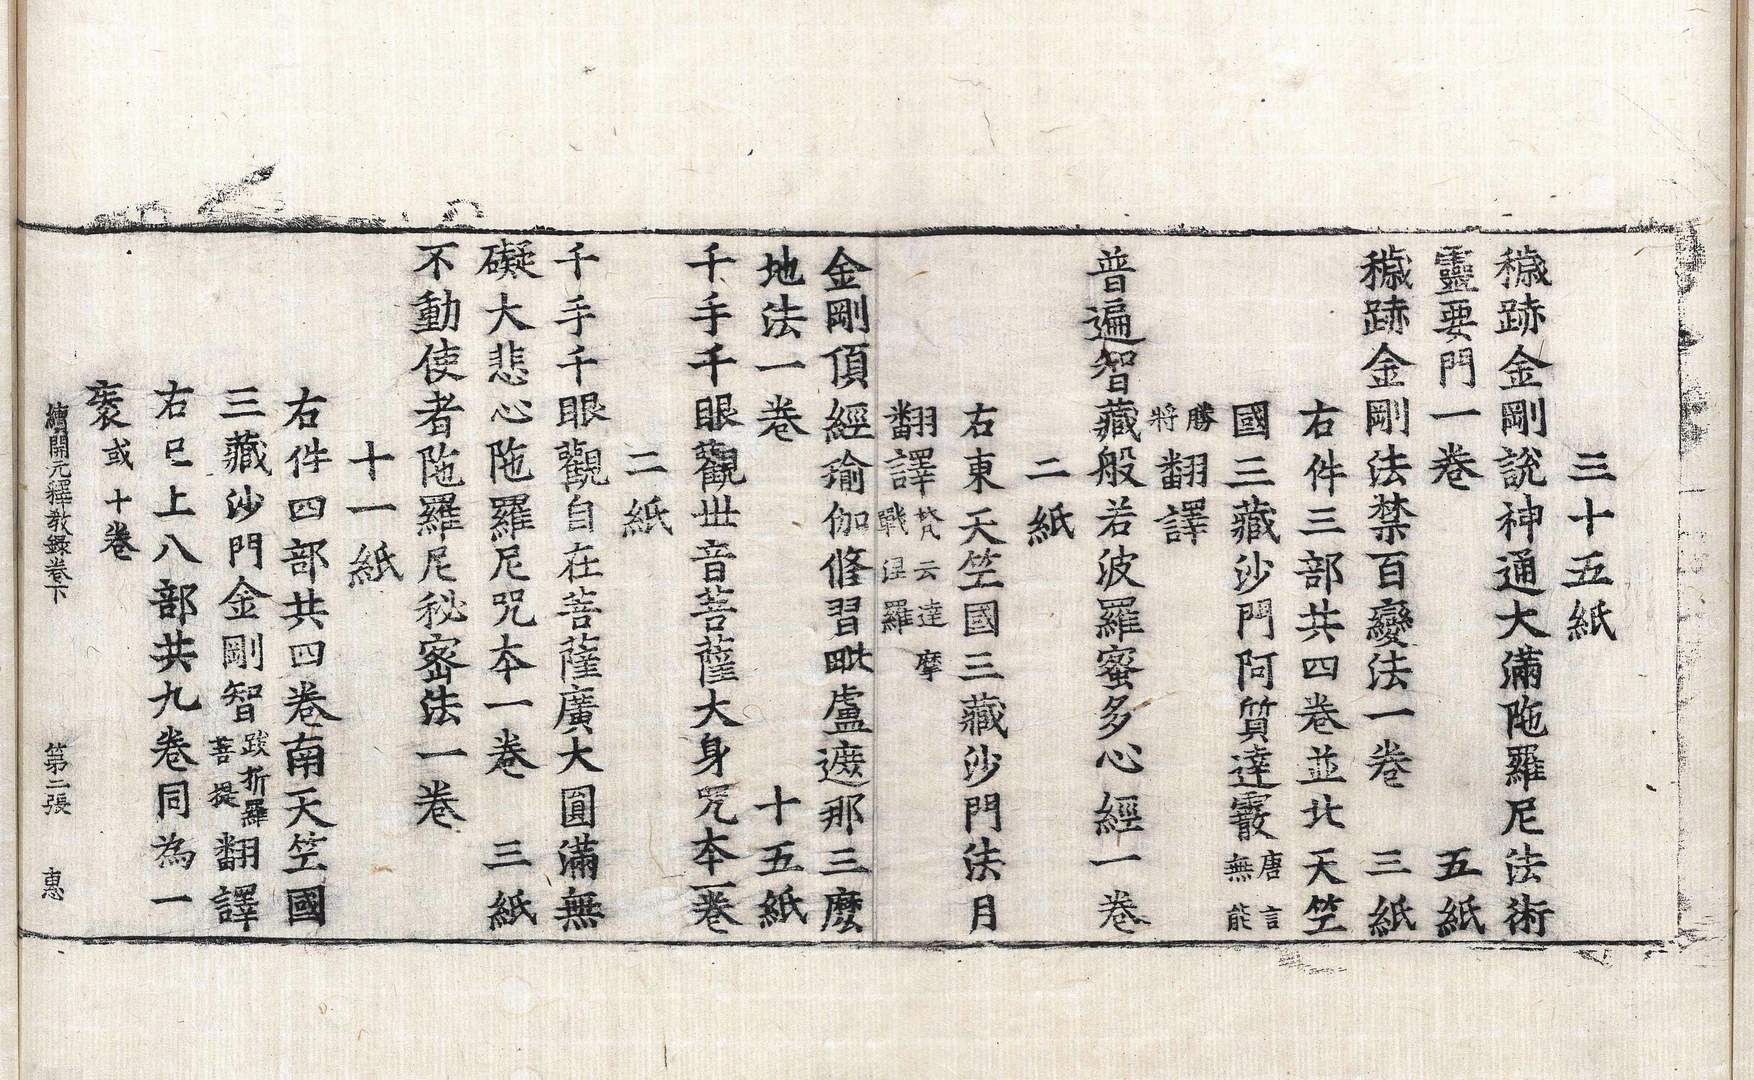 三十五紙
穢跡金剛說神通大滿陁羅尼法術
靈要門一卷 五紙
穢跡金剛法禁百變法一卷 三紙
右件三部共四卷並北天竺
國三藏沙門阿質達霰唐言無能
勝將翻譯
普遍智藏般若波羅蜜多心經一卷
二紙
右東天竺國三藏沙門法月
翻譯梵云達摩戰涅羅
金剛頂經瑜伽修習毗盧遮那三麼
地法一卷 十五紙
千手千眼觀世音菩薩大身咒本一卷
二紙
千手千眼觀自在菩薩廣大圓滿無
礙大悲心陁羅尼咒本一卷 三紙
不動使者陁羅尼秘密法一卷
十一紙
右件四部共四卷南天竺國
三藏沙門金剛智跋折羅菩提翻譯
右已上八部共九卷同為一
袠或十卷
續開元釋教錄卷下 第二張 惠